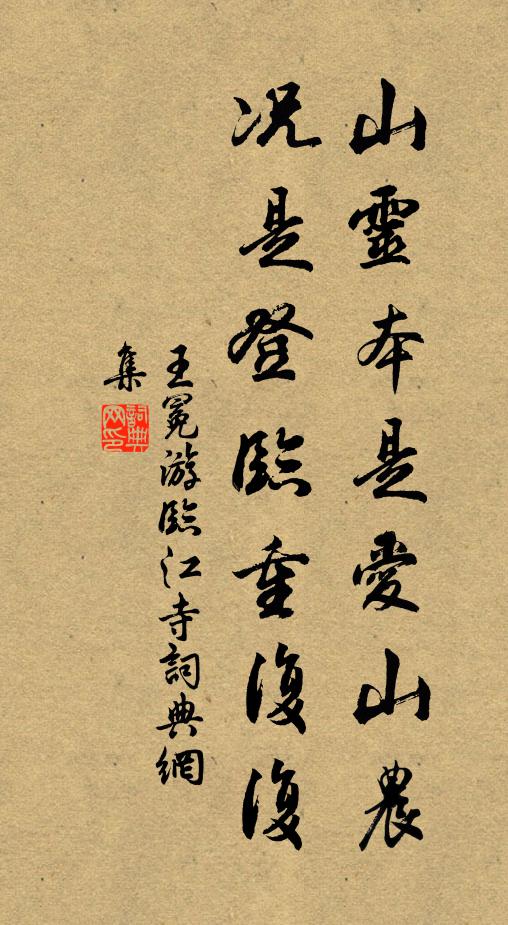 山靈本是愛山農
況是登臨重復復
王冕游臨江寺詞典網
集
詞典網印